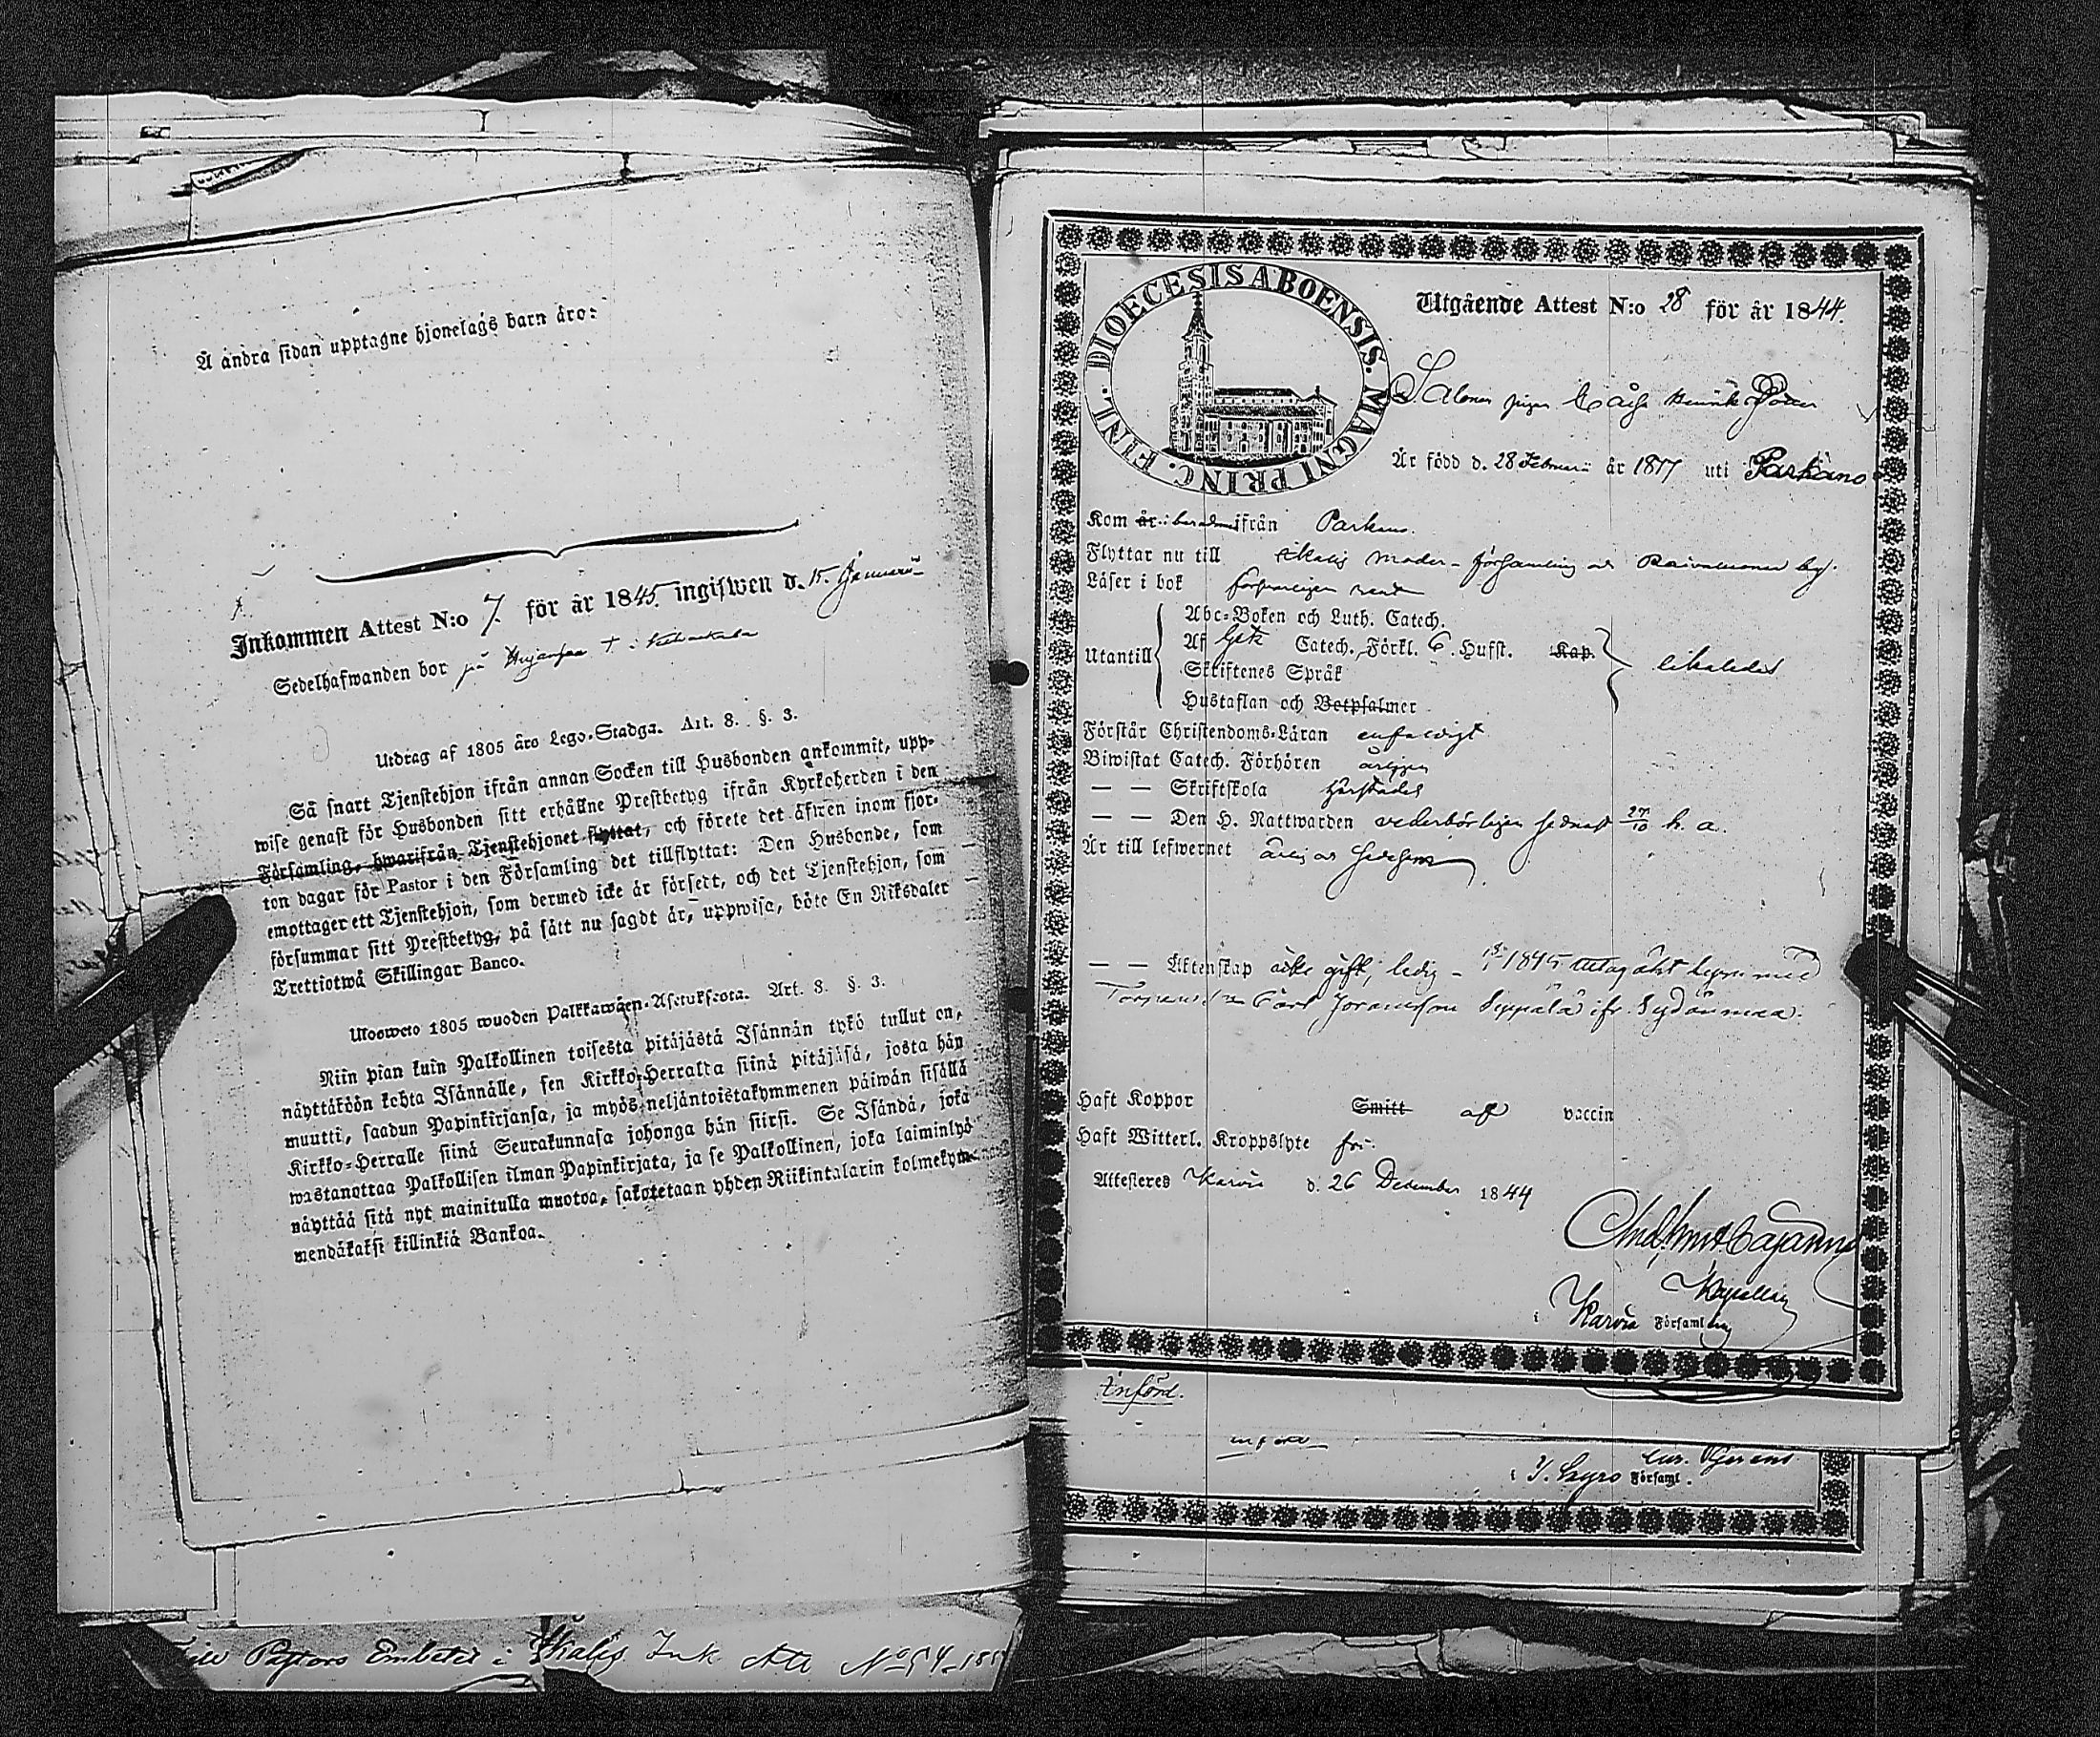 Å andra sidan upptagne hjonelags barn äro:
Inkommen Attest N:o 7. för år 1845. ingifwen d. 15. Januarii
Sedelhafwanden bor på
Utdrag af 1805 års Lego-Stadga. Art. 8. §. 3.
Så snart Tjenstehjon ifrån annan Socken till Husbonden ankommit, upp-
wise genast för Husbonden sitt erhållne Prestbetyg ifrån Kyrkoherden i den
Församling, hwarifrån Tjenstehjonet flyttat, och förete det äfwen inom fjor-
ton dagar för Pastor i den Församling det tillflyttat: Den Husbonde, som
emottager ett Tjenstehjon, som dermed icke är försedt, och det Tjenstehjon, som
försummar sitt Prestbetyg, på sätt nu sagdt är, uppwisa, böte En Riksdaler
Trettiotwå Skillingar Banco.
Ulosweto 1805 wuoden Palkkawäen-Asetuksesta. Art. 8. §. 3.
Niin pian kuin Palkollinen toisesta pitäjästä Isännän tykö tullut on,
näyttäköön kohta Isännälle, sen Kirkko-Herralta siinä pitäjäsä, josta hän
muutti, saadun Papinkirjansa, ja myös neljäntoistakymmenen päiwän sisällä
Kirkko-Herralle siinä Seurakunnasa johonga hän siirsi. Se Isändä, joka
wastanottaa Palkollisen ilman Papinkirjata, ja se Palkollinen, joka laiminlyö
näyttää sitä nyt mainitulla muotoa, sakotetaan yhden Riikintalarin kolmekym-
mendäkaksi killinkiä Bankoa.
Pastors Embetet i Ikalis Ink Att No 54
DIOECESIS ABOENSIS. MAGNI PRINC. FINL.
Utgående Attest N:o 28 för år 1844.
pigan Caisa Henriks Dotter
Är född d. 28 Februarii år 1817 uti Parkano
Kom år ifrån Parkano.
Flyttar nu till Ikalis Moder-församling och by.
Läser i bok försvarligen
Utantill
Abc-Boken och Luth. Catech.
Af Catech. Förkl. 6. Hufst. Kap.
Skriftenes Språk
Hustaflan och Botpsalmer
likaledes
Förstår Christendoms-Läran enfaldigt
Biwistat Catech. Förhören årligen
— — Skriftskola härstädes
— — Den H. Nattwarden vederbörligen sednast 27/10 h. a.
Är till lefwernet ärlig och
— — Äktenskap icke gift, ledig - 1845 med
Haft Koppor Smitt af vaccin
Haft Witterl. Kroppslyte fri.
Attesteres Karvia d. 26 December 1844
And. Cajanus
Kapellan
i Karvia Församling
Införd.
i Församl.